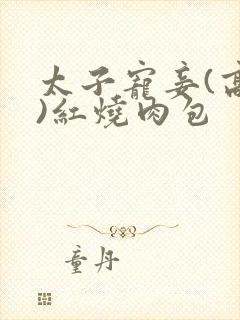 太子寵妾(高
)紅燒肉包
童丹